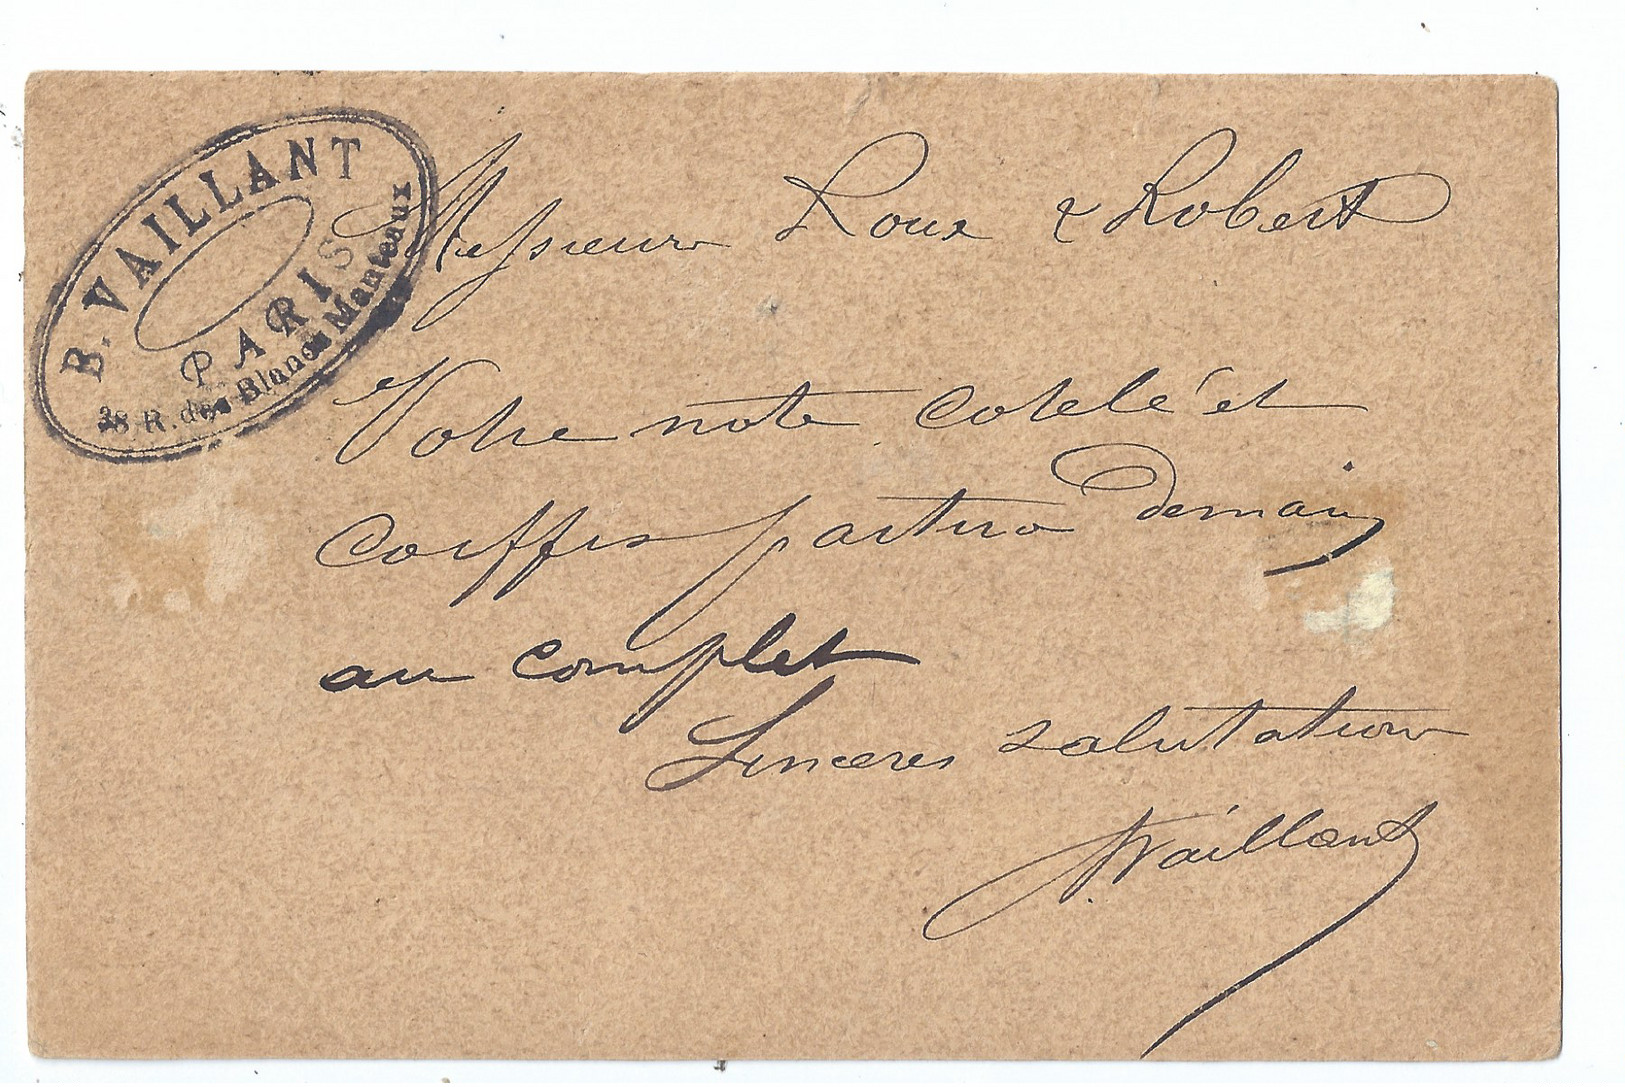 B. VAILLANT
PARIS
28 R. des Blancs Manteaux
Messieurs Roux & Robert
Votre note cotelé et
coiffes partira Demain
au complet
Sincères salutations
Vaillant